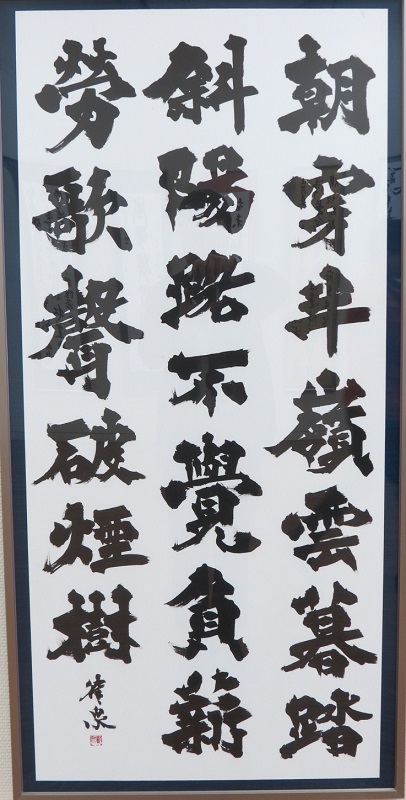 朝穿半嶺雲暮踏
斜陽路不覺負薪
勞歌聲破煙樹